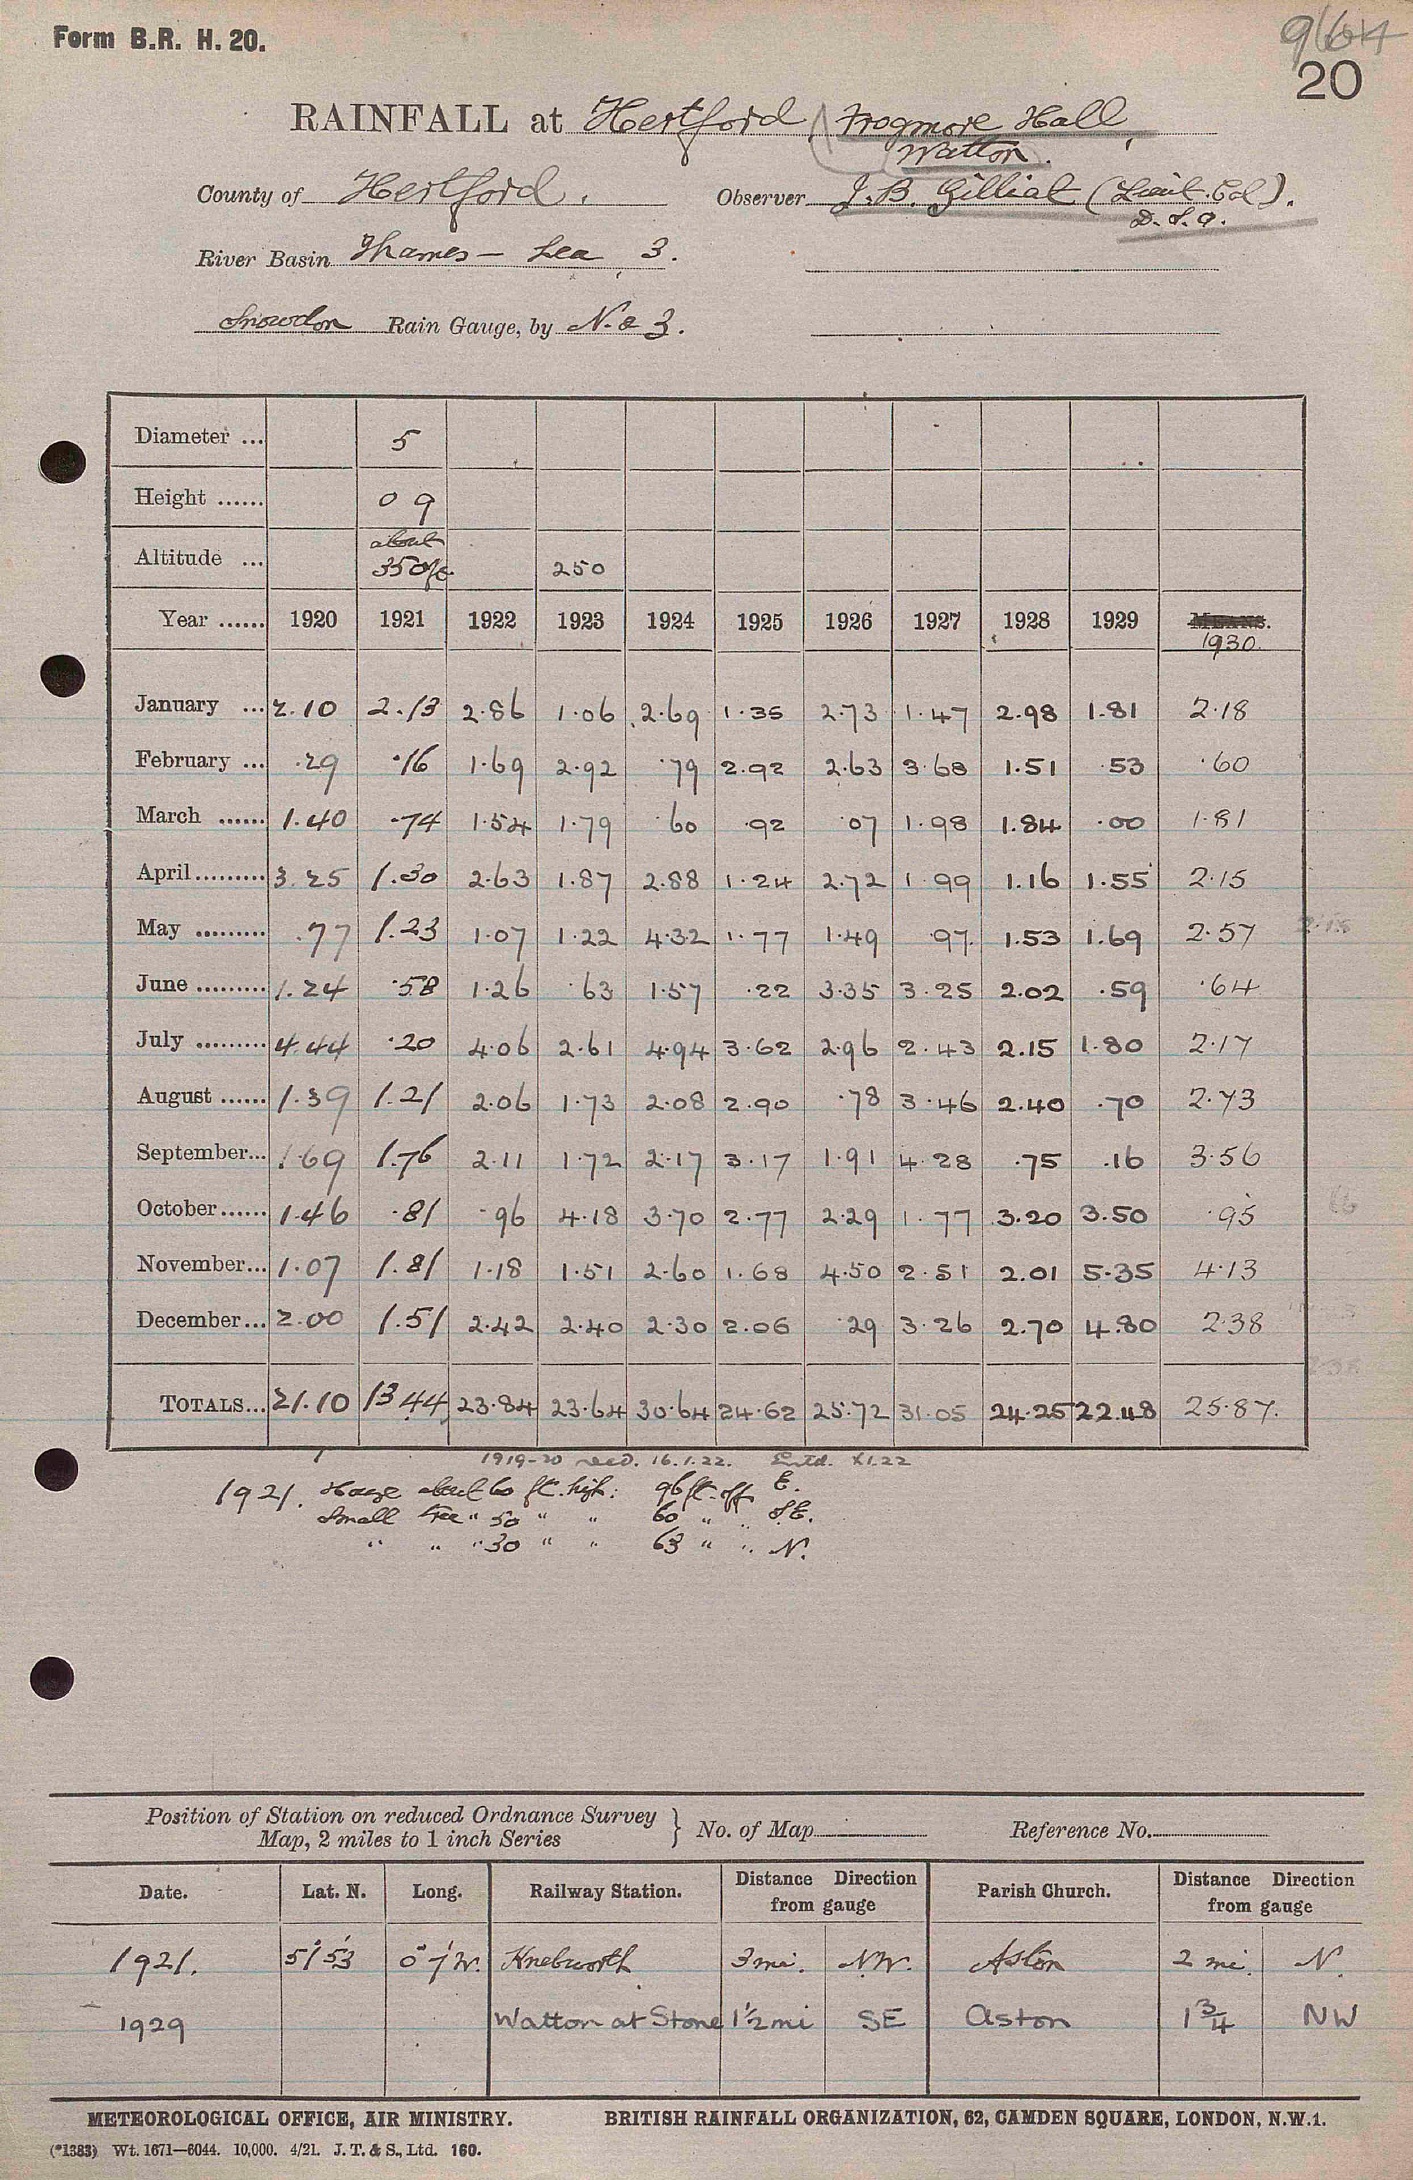 Form B.R. H. 20.
9604
20
RAINFALL at Hertford, (Frogmore Hall,
Watton.)
County of Hertford. Observer J. B. Gilliat (Lieut. Col).
D.S.O.
River Basin Thames - Lea 3.
Snowdon Rain Gauge, by N. & Z.
Diameter ... 5
Height ...... 0 9
Altitude ... about 350 ft. 250
Year ...... 1920 1921 1922 1923 1924 1925 1926 1927 1928 1929 MEANS. 1930.
January ... 2.10 2.13 2.86 1.06 2.69 1.35 2.73 1.47 2.98 1.81 2.18
February ... .29 .16 1.69 2.92 .79 2.92 2.63 3.68 1.51 .53 .60
March ...... 1.40 .74 1.54 1.79 .60 .92 .07 1.98 1.84 .00 1.81
April ......... 3.25 1.30 2.63 1.87 2.88 1.24 2.72 1.99 1.16 1.55 2.15
May ......... .77 1.23 1.07 1.22 4.32 1.77 1.49 .97 1.53 1.69 2.57
June ......... 1.24 .58 1.26 .63 1.57 .22 3.35 3.25 2.02 .59 .64
July ......... 4.44 .20 4.06 2.61 4.94 3.62 2.96 2.43 2.15 1.80 2.17
August ...... 1.39 1.21 2.06 1.73 2.08 2.90 .78 3.46 2.40 .70 2.73
September... 1.69 1.76 2.11 1.72 2.17 3.17 1.91 4.28 .75 .16 3.56
October ...... 1.46 .81 .96 4.18 3.70 2.77 2.29 1.77 3.20 3.50 .95
November... 1.07 1.81 1.18 1.51 2.60 1.68 4.50 2.51 2.01 5.35 4.13
December... 2.00 1.51 2.42 2.40 2.30 2.06 .29 3.26 2.70 4.80 2.38
TOTALS... 21.10 13.44 23.84 23.64 30.64 24.62 25.72 31.05 24.25 22.48 25.87.
1919-20 recd. 16.1.22. Entd. XI.22
1921. House about 60 ft. high: 96 ft. off E.
Small tree " 50 " " 60 " " S.E.
" " " 30 " " 63 " " N.
Position of Station on reduced Ordnance Survey
Map, 2 miles to 1 inch Series } No. of Map Reference No.
Date. Lat. N. Long. Railway Station. Distance Direction from gauge Parish Church. Distance Direction from gauge
1921. 51° 53' 0° 7' W. Knebworth 3 mi. N.W. Aston 2 mi. N.
1929 Watton at Stone 1½ mi SE Aston 1¾ NW
METEOROLOGICAL OFFICE, AIR MINISTRY. BRITISH RAINFALL ORGANIZATION, 62, CAMDEN SQUARE, LONDON, N.W.1.
(*1383) Wt. 1671—6044. 10,000. 4/21. J. T. & S., Ltd. 160.